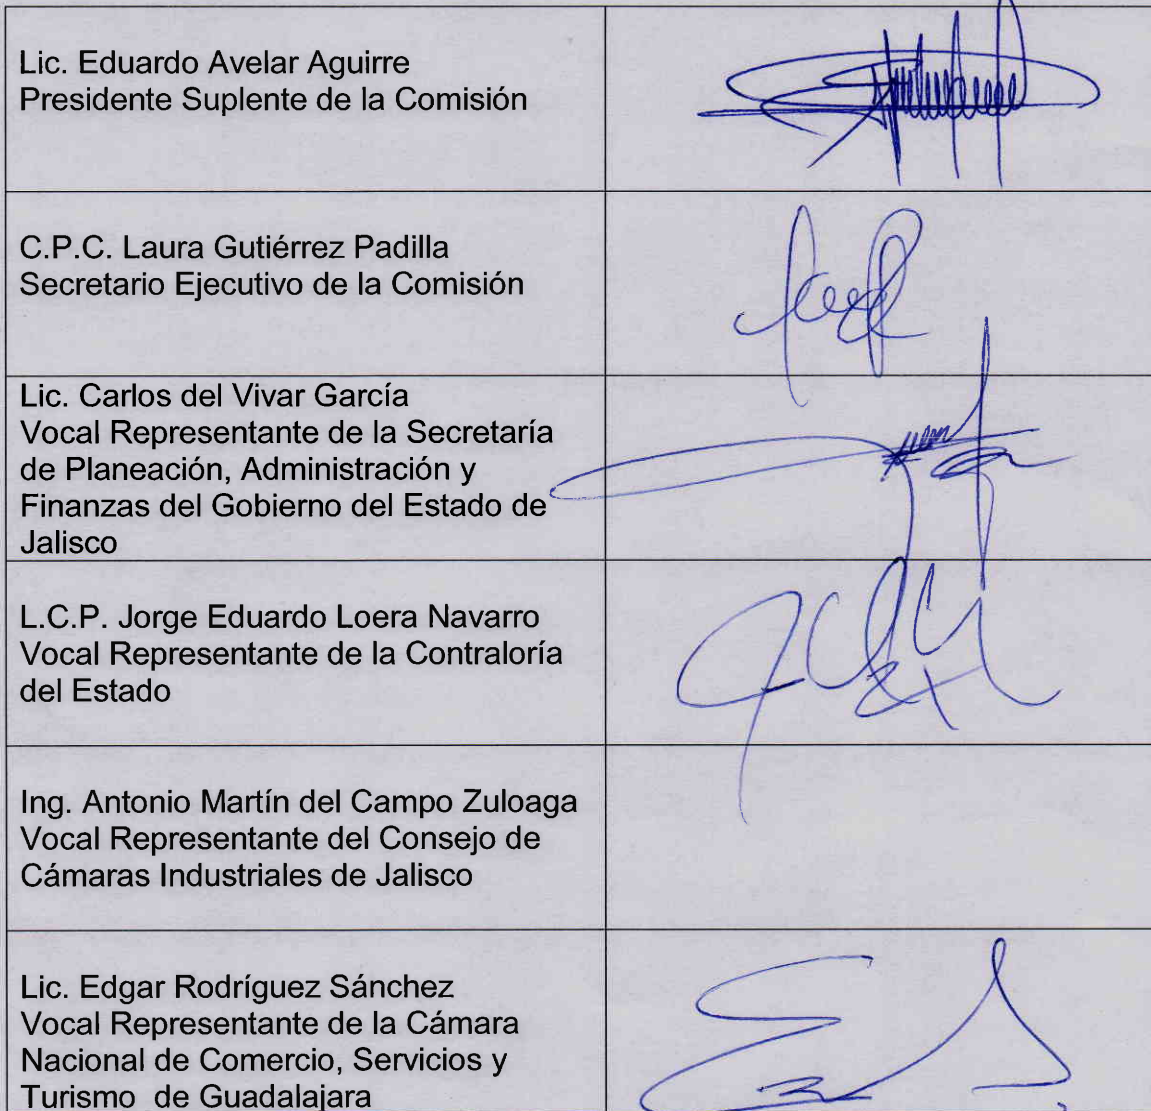 Lic. Eduardo Avelar Aguirre
Presidente Suplente de la Comisión
C.P.C. Laura Gutiérrez Padilla
Secretario Ejecutivo de la Comisión
Lic. Carlos del Vivar García
Vocal Representante de la Secretaría
de Planeación, Administración y
Finanzas del Gobierno del Estado de
Jalisco
L.C.P. Jorge Eduardo Loera Navarro
Vocal Representante de la Contraloría
del Estado
Ing. Antonio Martín del Campo Zuloaga
Vocal Representante del Consejo de
Cámaras Industriales de Jalisco
Lic. Edgar Rodríguez Sánchez
Vocal Representante de la Cámara
Nacional de Comercio, Servicios y
Turismo  de Guadalajara